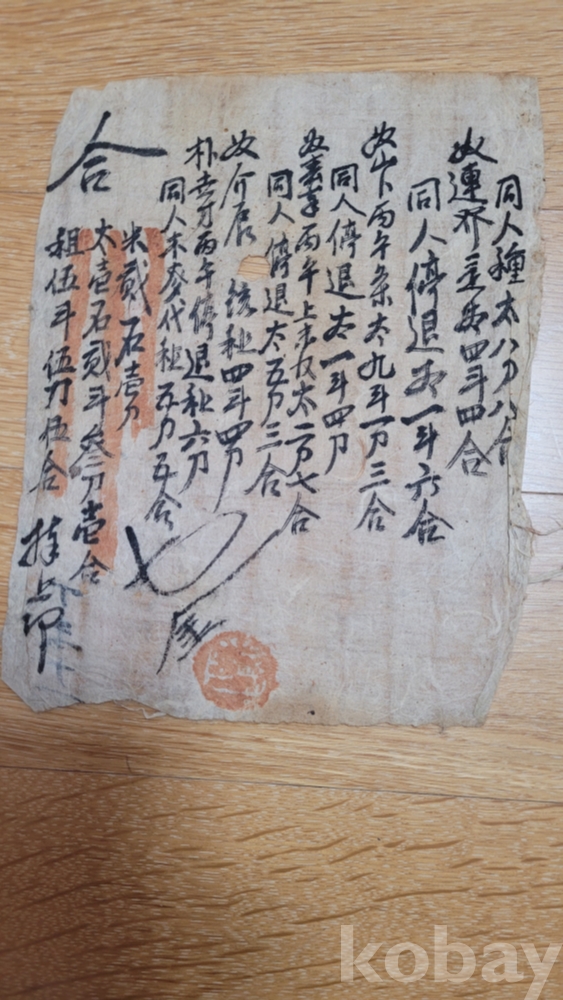 同人種太八刀八合
奴連介立太四斗四合
同人停退太一斗六合
奴山卜丙午条太九斗一刀三合
同人停退太一斗四刀
丙午上末收太二刀七合
同人停退太五刀三合
奴介
租四斗四刀
朴
丙午停退租六刀
同人木麥代租五刀五合
合
米貳石壹刀
太壹石貳斗叁刀壹合
租伍斗伍刀伍合
捧上印
kobay